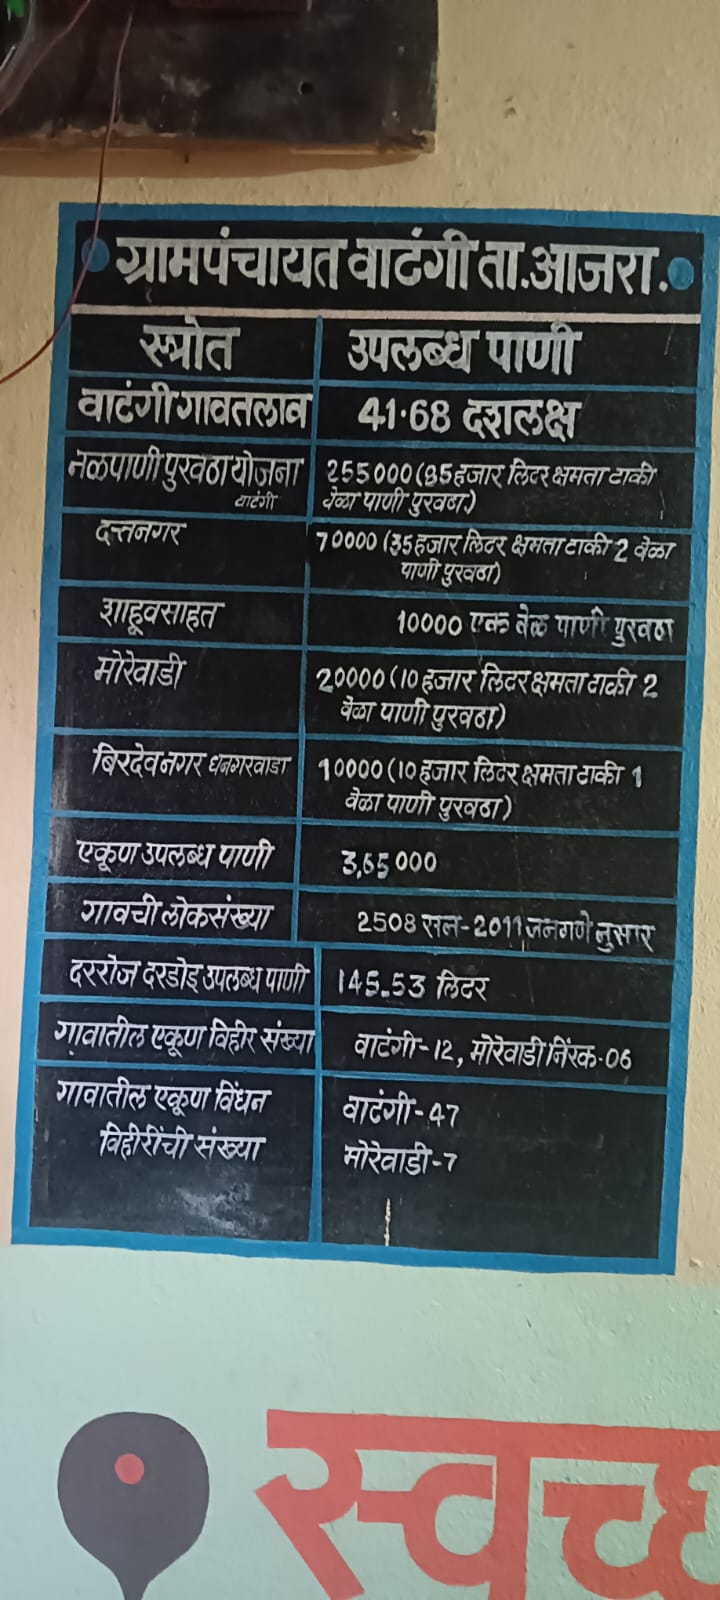 ग्रामपंचायत वाटंगी ता.आजरा.
स्त्रोत उपलब्ध पाणी
वाटंगी गावतलाव 41.68 दशलक्ष
नळपाणी पुरवठा योजना 255000 (85 हजार लिटर क्षमता टाकी
वाटंगी वेळा पाणी पुरवठा)
दत्तनगर 70000 (35 हजार लिटर क्षमता टाकी 2 वेळा
पाणी पुरवठा)
शाहूवसाहत 10000 एक वेळ पाणी पुरवठा
मोरेवाडी 20000 (10 हजार लिटर क्षमता टाकी 2
वेळा पाणी पुरवठा)
बिरदेवनगर धनगरवाडा 10000 (10 हजार लिटर क्षमता टाकी 1
वेळा पाणी पुरवठा)
एकूण उपलब्ध पाणी 3,65000
गावची लोकसंख्या 2508 सन-2011 जनगणे नुसार
दररोज दरडोइ उपलब्ध पाणी 145.53 लिटर
गावातील एकूण विहीर संख्या वाटंगी-12, मोरेवाडी निंरक-06
गावातील एकूण विंधन वाटंगी-47
विहीरींची संख्या मोरेवाडी-7
स्वच्छ